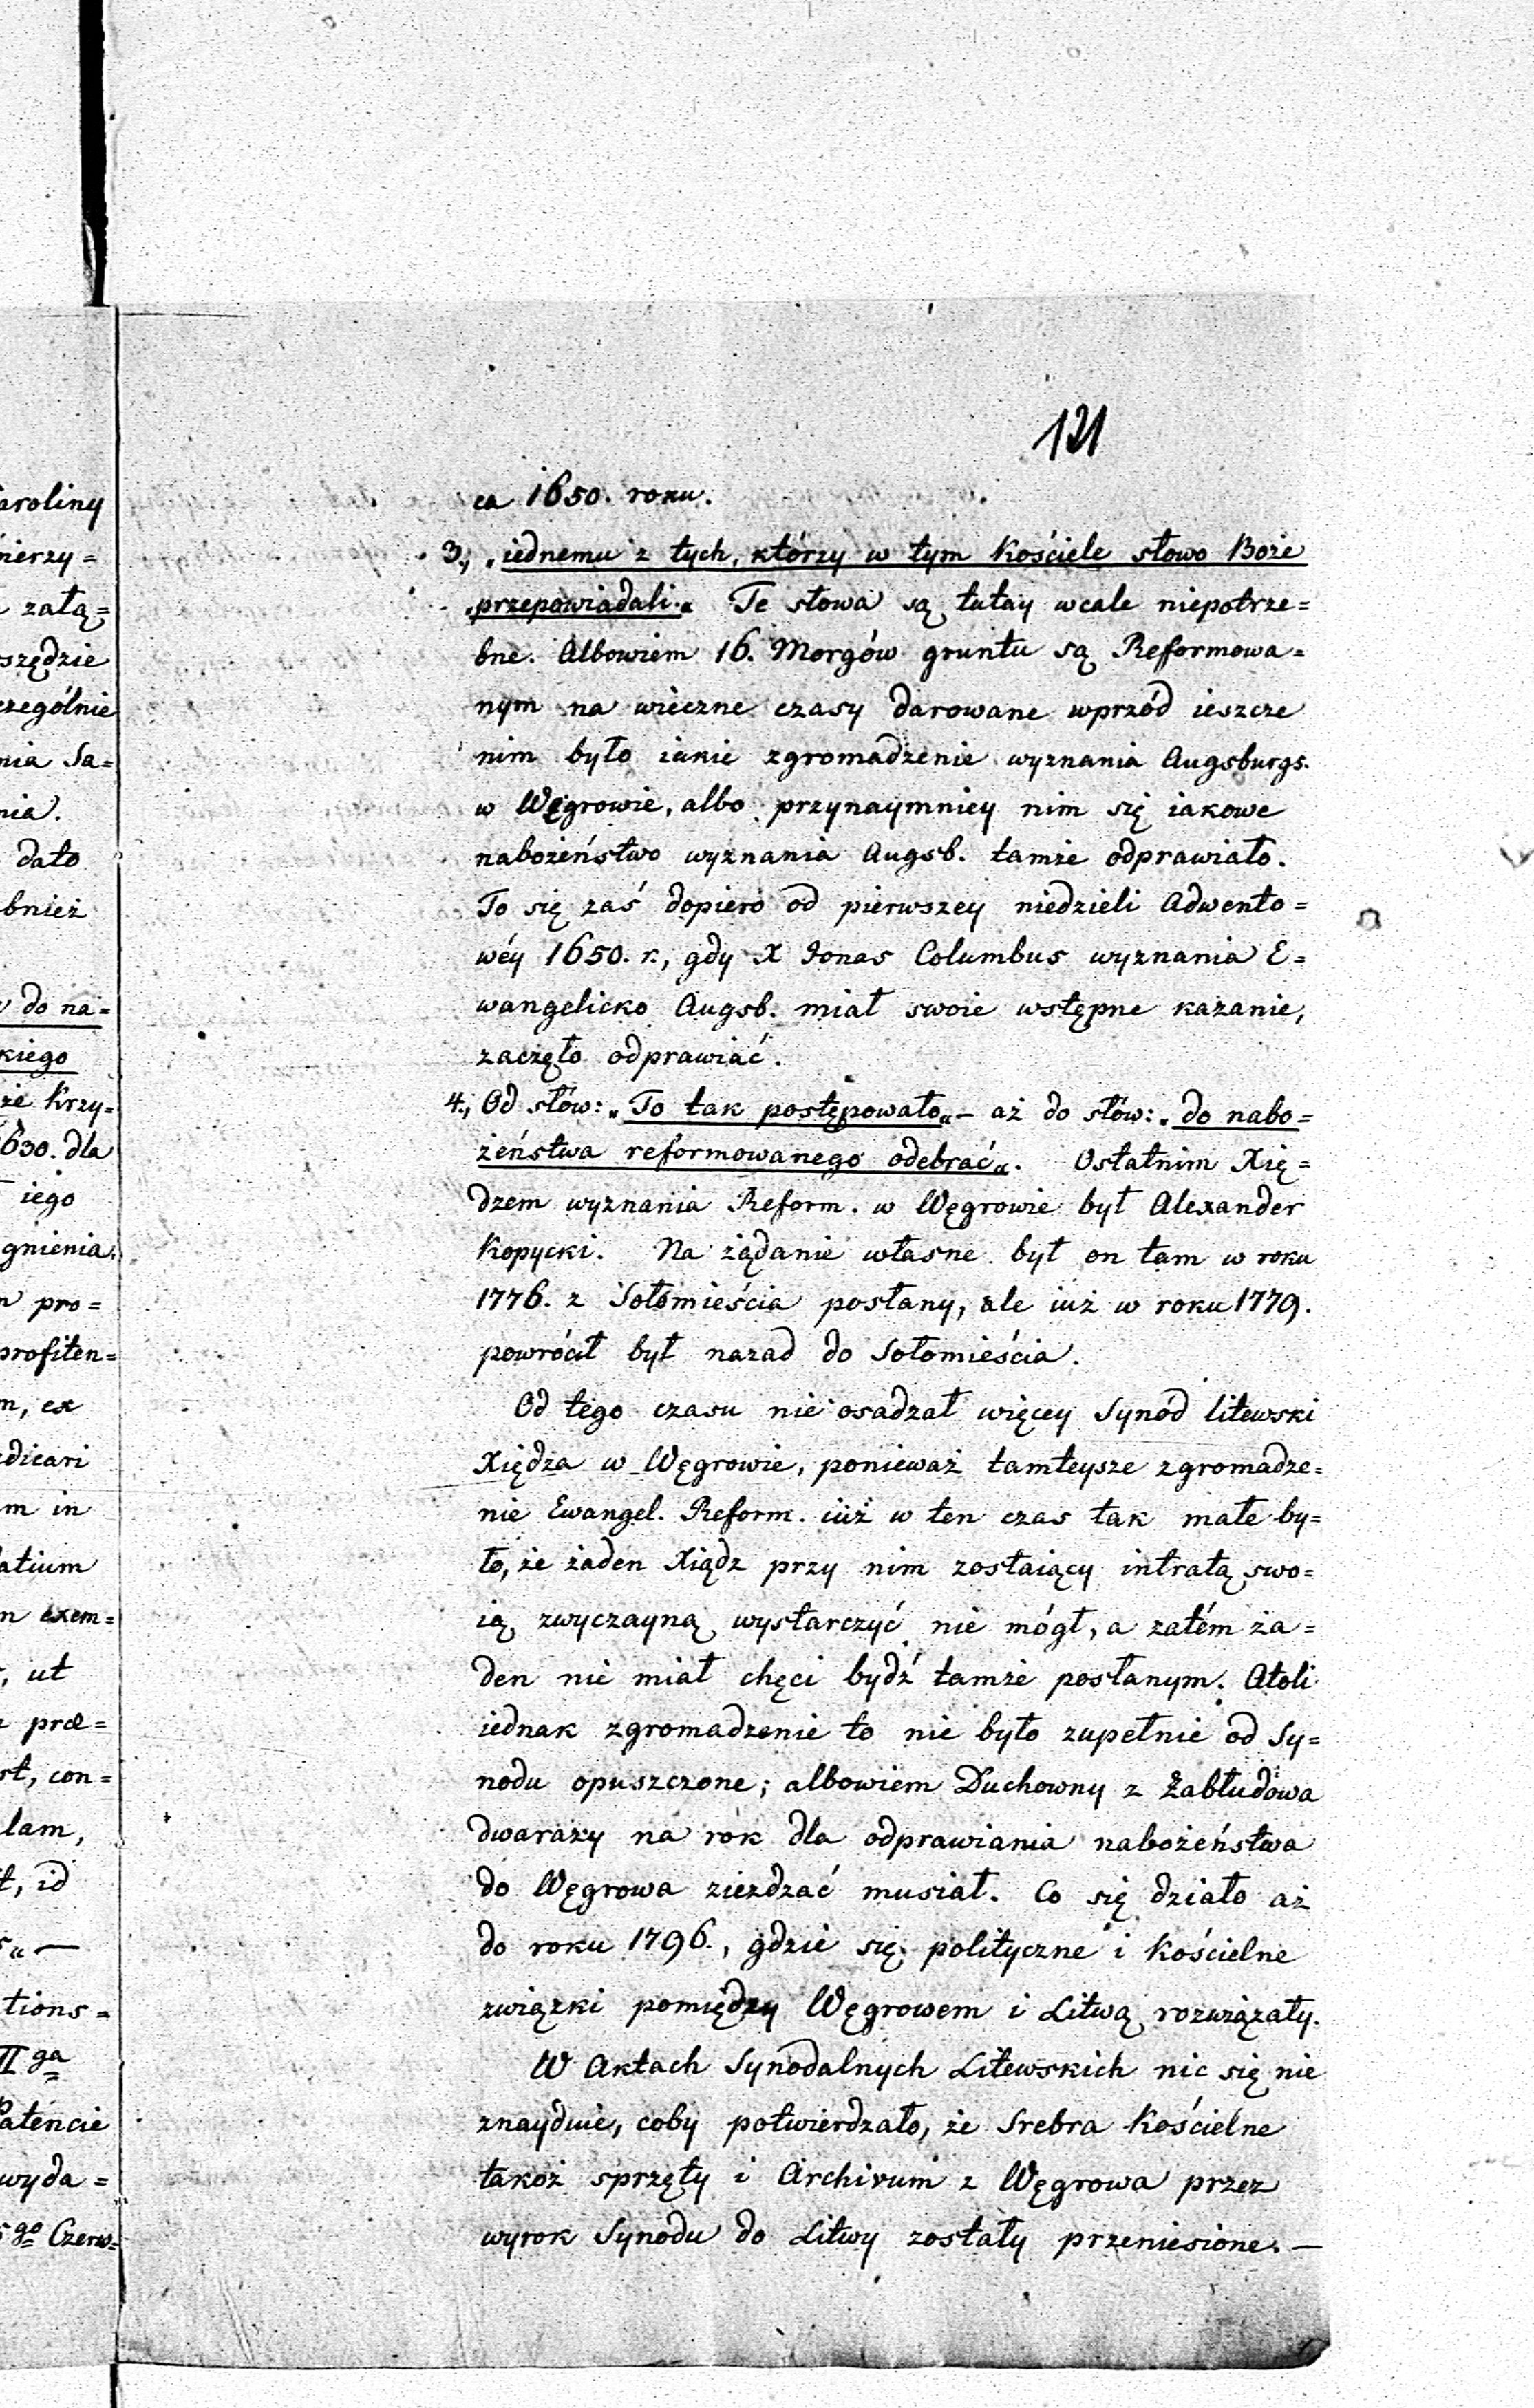 aroliny
nierzy=
załą=
szędzie
czególnie
nia Sa=
nia.
dało
bnież
do na=
kiego
że Krzy=
630. dla
iego
gnienia,
pro=
profiten=
m, ex
dicari
m in
atium
n exem=
, ut
præ=
st, con=
lam,
t, id
s„ —
tions=
II ga
Patencie
wyda=
5 go Czerw=
121
ca 1650. roku.
3., „iednemu z tych, którzy w tym Kościele słowo Boże
„przepowiadali.„ Te słowa są tutay wcale niepotrze=
bne. Albowiem 16. Morgów gruntu są Reformowa=
nym na wieczne czasy darowane wprzód ieszcze
nim było iakie zgromadzenie wyznania Augsburgs.
w Węgrowie, albo przynaymniey nim się iakowe
nabożeństwo wyznania Augsb. tamże odprawiało.
To się zaś dopiero od pierwszey niedzieli Adwento=
wéy 1650. r., gdy X Jonas Columbus wyznania E=
wangelicko Augsb. miał swoie wstępne kazanie,
zaczęło odprawiać.
4., Od słów: „To tak postępowało„ — aż do słów: „do nabo=
żeństwa reformowanego odebrać„. Ostatnim Xię=
dzem wyznania Reform. w Węgrowie był Alexander
Kopycki. Na żądanie własne był on tam w roku
1776. z Sołomieścia posłany, ale iuż w roku 1779.
powrócił był nazad do Sołomieścia.
Od tego czasu nie osadzał więcey Synód litewski
Xiędza w Węgrowie, ponieważ tamteysze zgromadze=
nie Ewangel. Reform. iuż w ten czas tak małe by=
ło, że żaden Xiądz przy nim zostaiący intratą swo=
ią zwyczayną wystarczyć nie mógł, a zatém ża=
den nie miał chęci bydź tamże posłanym. Atoli
iednak zgromadzenie to nie było zupełnie od Sy=
nodu opuszczone; albowiem Duchowny z Zabłudowa
dwarazy na rok dla odprawiania nabożeństwa
do Węgrowa ziezdzać musiał. Co się działo aż
do roku 1796., gdzie się polityczne i Kościelne
związki pomiędzy Węgrowem i Litwą rozwiązały.
W Aktach Synodalnych Litewskich nic się nie
znayduie, coby potwierdzało, że Srebra Kościelne
takoż sprzęty i Archivum z Węgrowa przez
wyrok Synodu do Litwy zostały przeniesione. —